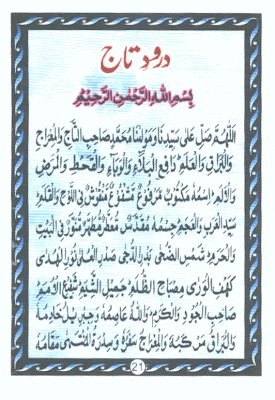 درود تاج
بِسْمِ اللهِ الرَّحْمٰنِ الرَّحِيْمِ
اَللّٰهُمَّ صَلِّ عَلٰى سَيِّدِنَا وَمَوْلٰنَا مُحَمَّدٍ صَاحِبِ التَّاجِ وَالْمِعْرَاجِ
وَالْبُرَاقِ وَالْعَلَمِ دَافِعِ الْبَلَآءِ وَالْوَبَآءِ وَالْقَحْطِ وَالْمَرَضِ
وَالْاَلَمِ اِسْمُهٗ مَكْتُوْبٌ مَّرْفُوْعٌ مَّشْفُوْعٌ مَّنْقُوْشٌ فِى اللَّوْحِ وَالْقَلَمِ
سَيِّدِ الْعَرَبِ وَالْعَجَمِ جِسْمُهٗ مُقَدَّسٌ مُّعَطَّرٌ مُّطَهَّرٌ مُّنَوَّرٌ فِى الْبَيْتِ
وَالْحَرَمِ شَمْسِ الضُّحٰى بَدْرِ الدُّجٰى صَدْرِ الْعُلٰى نُوْرِ الْهُدٰى
كَهْفِ الْوَرٰى مِصْبَاحِ الظُّلَمِ جَمِيْلِ الشِّيَمِ شَفِيْعِ الْاُمَمِ
صَاحِبِ الْجُوْدِ وَالْكَرَمِ وَاللهُ عَاصِمُهٗ وَجِبْرِيْلُ خَادِمُهٗ
وَالْبُرَاقُ مَرْكَبُهٗ وَالْمِعْرَاجُ سَفَرُهٗ وَسِدْرَةُ الْمُنْتَهٰى مَقَامُهٗ
21